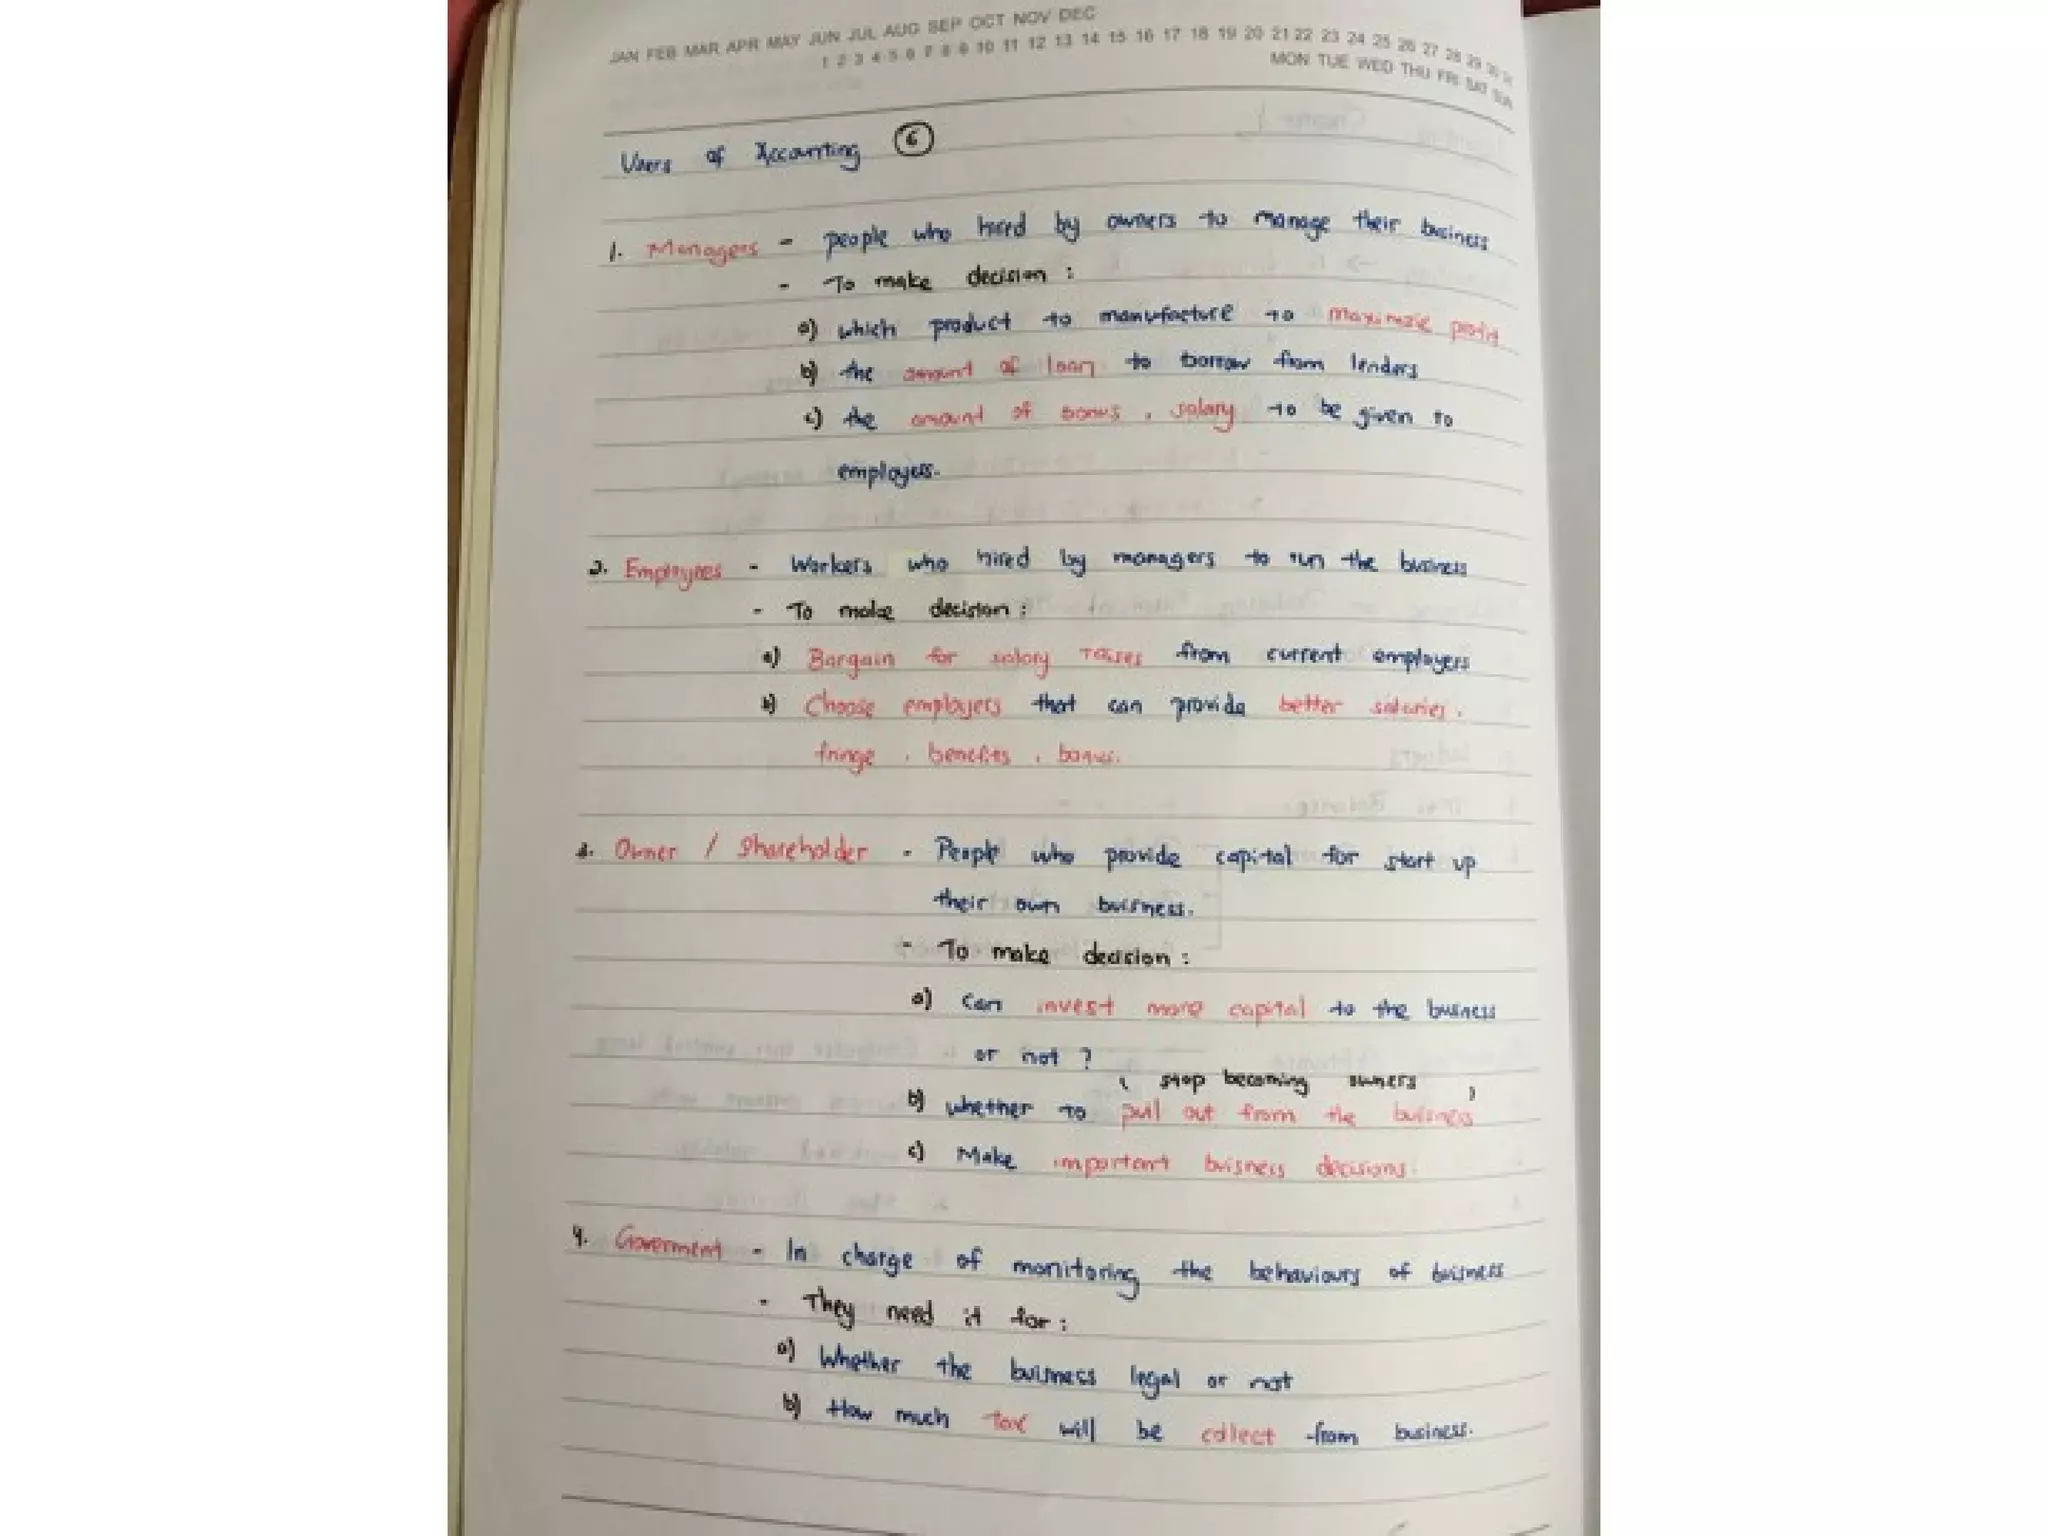 JAN FEB MAR APR MAY JUN JUL AUG SEP OCT NOV DEC
1 2 3 4 5 6 7 8 9 10 11 12 13 14 15 16 17 18 19 20 21 22 23 24 25 26 27 28 29 30 31
MON TUE WED THU FRI SAT SUN
Users of Accounting 6
1. Managers - people who hired by owners to manage their business
- To make decision :
a) which product to manufacture to maximize profit
b) the amount of loan to borrow from lenders
c) the amount of bonus , salary to be given to
employees.
2. Employees - Workers who hired by managers to run the business
- To make decision :
a) Bargain for salary raises from current employers
b) Choose employers that can provide better salaries ,
fringe , benefits , bonus.
3. Owner / Shareholder - People who provide capital for start up
their own buisness.
- To make decision :
a) Can invest more capital to the business
or not ?
( stop becoming owners )
b) whether to pull out from the buisness
c) Make important buisness decisions.
4. Goverment - In charge of monitoring the behaviours of buisness
- They need it for :
a) Whether the buisness legal or not
b) How much tax will be collect from business.